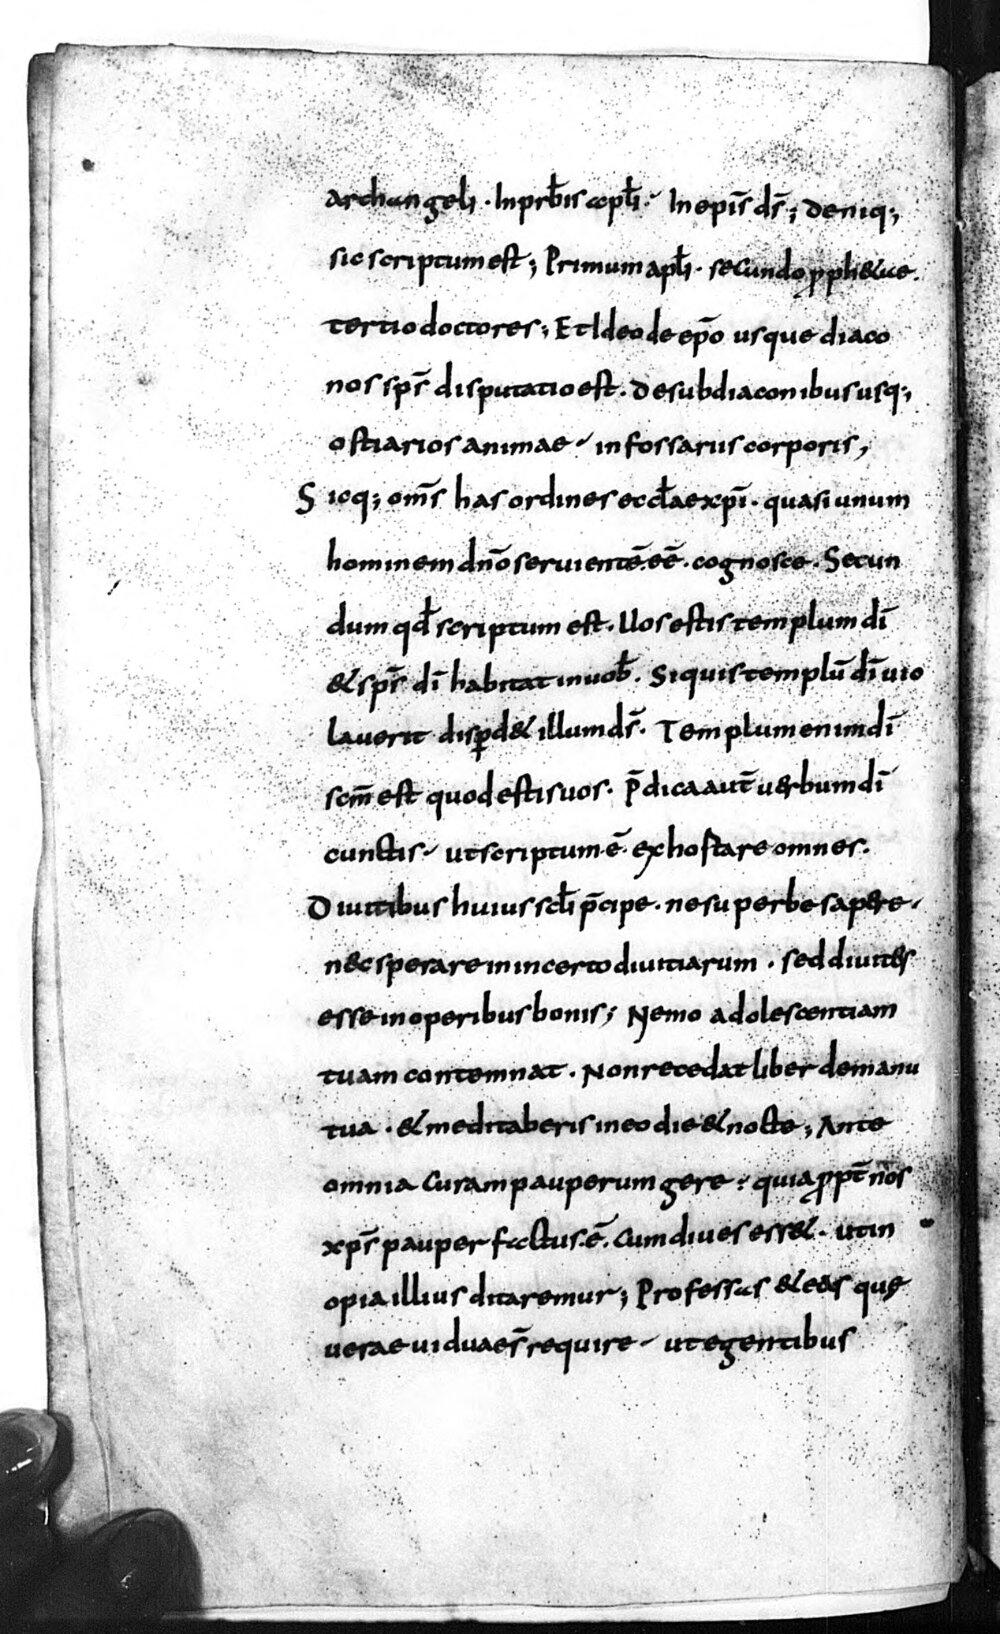 archangeli · Inprb̄is apłi · In epīs ds̄ ; Deniq;
sic scriptum est ; Primum apłi · secundo pphetae ·
tertio doctores ; Et Ideo de epō usque diaco
nos sps̄ disputatio est · De subdiaconibus usq;
ostiarios animae · in fossariis corporis ,
Sicq; oms̄ has ordines eccłae xpī · quasi unum
hominem dnō seruientē eē · cognosce · Secun
dum qd̄ scriptum est · Uos estis templum dī
& sps̄ dī habitat in uob̄ · Si quis templū dī uio
lauerit disꝑd& illum ds̄ · Templum enim dī
scm̄ est quod estis uos · P̄dica aut̄ uerbum dī
cunctis · ut scriptum ē · exhostare omnes ·
Diuitibus huius scłi p̄cipe · ne superbe sapere ·
nec sperare in incerto diuitiarum · sed diuites
esse in operibus bonis ; Nemo adolescentiam
tuam contemnat · Non recedat liber de manu
tua · & meditaberis in eo die & nocte ; Ante
omnia Curam pauperum gere : quia ꝓpt̄ nōs
xps̄ pauper factus ē · Cum diues ess& · ut in
opia illius ditaremur ; Professas & eas quę
uerae uiduae s̄ require · ut egentibus